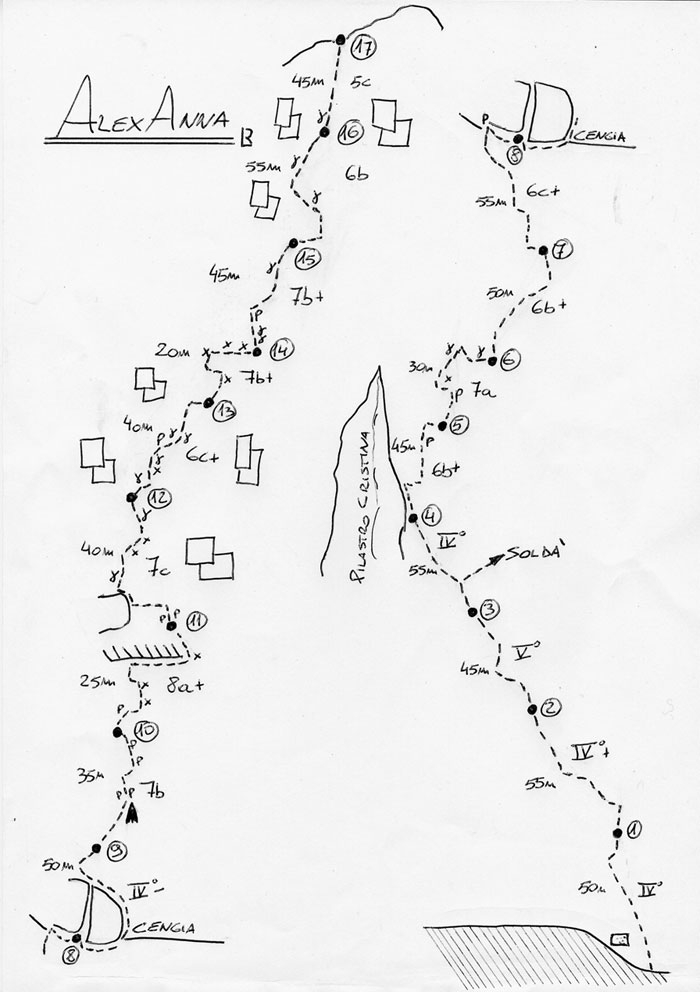 ALEXANNA
17
45m 5c
16
55m 6b
15
45m 7b+
P
14
20m 7b+
13
40m P 6c+
12
40m 7c
P P 11
25m 8a+
P
10
P
P
35m
P P 7b
9
50m IV°-
CENGIA
8
P
CENGIA
8
55m 6c+
7
50m 6b+
6
30m 7a
P
5
P
45m 6b+
PILASTRO CRISTINA
4
IV°
55m SOLDA'
3
V°
45m
2
IV°+
55m
1
50m IV°